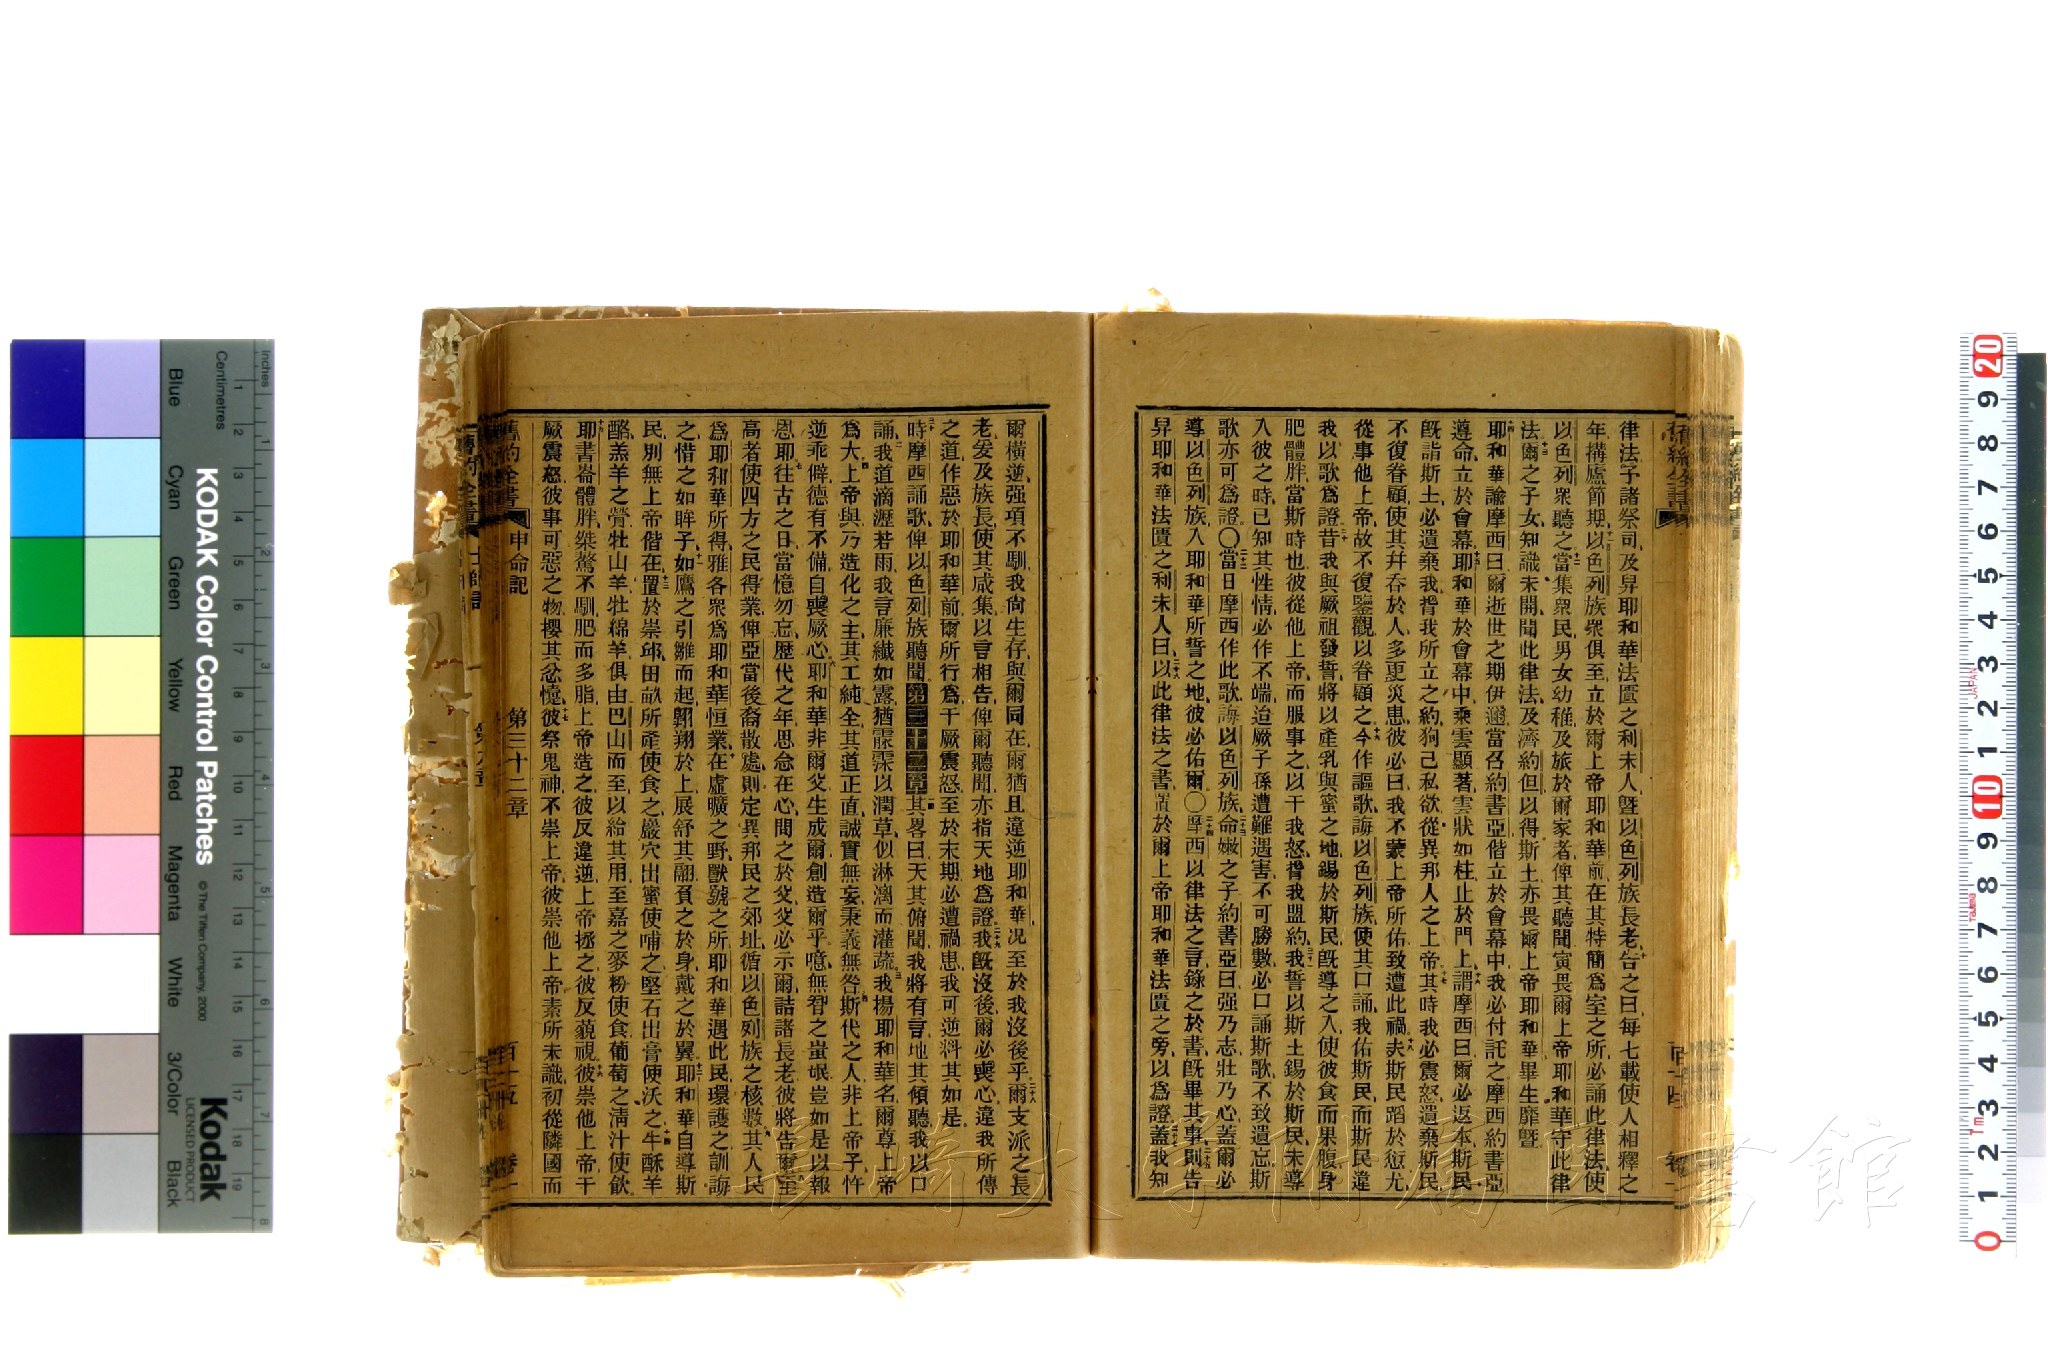 律法予諸祭司及舁耶和華法匱之利未人曁以色列族長老告之曰每七載使人相釋之
年搆廬節期以色列族衆俱至立於爾上帝耶和華前在其特簡爲室之所必誦此律法使
以色列衆聽之當集衆民男女幼穉及旅於爾家者俾其聽聞寅畏爾上帝耶和華守此律
法爾之子女知識未開聞此律法及濟約但以得斯土亦畏爾上帝耶和華畢生靡曁
耶和華諭摩西曰爾逝世之期伊邇當召約書亞偕立於會幕中我必付託之摩西約書亞
遵命立於會幕耶和華於會幕中乘雲顯著雲狀如柱止於門上謂摩西曰爾必返本斯民
旣詣斯土必遺棄我背我所立之約狥己私欲從異邦人之上帝其時我必震怒遺棄斯民
不復眷顧使其幷吞於人多更災患彼必曰我不蒙上帝所佑致遭此禍夫斯民蹈於愆尤
從事他上帝故不復鑒觀以眷顧之今作謳歌誨以色列族使其口誦我佑斯民而斯民違
我以歌爲證昔我與厥祖發誓將以產乳與蜜之地錫於斯民旣導之入使彼食而果腹身
肥體胖當斯時也彼從他上帝而服事之以干我怒背我盟約我誓以斯土錫於斯民未導
入彼之時已知其性情必作不端迨厥子孫遭難遇害不可勝數必口誦斯歌不致遺忘斯
歌亦可爲證〇當日摩西作此歌誨以色列族命嫩之子約書亞曰强乃志壯乃心蓋爾必
導以色列族入耶和華所誓之地彼必佑爾〇摩西以律法之言錄之於書旣畢其事則告
舁耶和華法匱之利未人曰以此律法之書置於爾上帝耶和華法匱之旁以爲證蓋我知
爾橫逆强項不馴我尙生存與爾同在爾猶且違逆耶和華况至於我沒後乎爾支派之長
老爰及族長使其咸集以言相告俾爾聽聞亦指天地爲證我旣沒後爾必喪心違我所傳
之道作惡於耶和華前爾所行爲干厥震怒至於末期必遭禍患我可逆料其如是
時摩西誦歌俾以色列族聽聞第三十二章其畧曰天其俯聞我將有言地其傾聽我以口
誦我道滴瀝若雨我言廉纖如露猶霢霂以潤草似淋漓而灌蔬我揚耶和華名爾尊上帝
爲大上帝與乃造化之主其工純全其道正直誠實無妄秉義無咎斯代之人非上帝子忤
逆乖僻德有不備自喪厥心耶和華非爾父生成爾創造爾乎噫無智之蚩氓豈如是以報
恩耶往古之日當憶勿忘歷代之年思念在心問之於父父必示爾詰諸長老彼將告爾至
高者使四方之民得業俾亞當後裔散處則定異邦民之郊址循以色列族之核數其人民
爲耶和華所得雅各衆爲耶和華恒業在虛曠之野獸號之所耶和華遇此民環護之訓誨
之惜之如眸子如鷹之引雛而起翺翔於上展舒其翮負之於身戴之於翼耶和華自導斯
民別無上帝偕在置於崇邱田畝所產使食之巖穴出蜜使哺之堅石出膏使沃之牛酥羊
酪羔羊之膋牡山羊牡綿羊俱由巴山而至以給其用至嘉之麥粉使食葡萄之淸汁使飮
耶書崙體胖桀驁不馴肥而多脂上帝造之彼反違逆上帝拯之彼反藐視彼崇他上帝干
厥震怒彼事可惡之物攖其忿懥彼祭鬼神不崇上帝彼崇他上帝素所未識初從隣國而
舊約全書 申命記 第三十二章 百十五 卷一